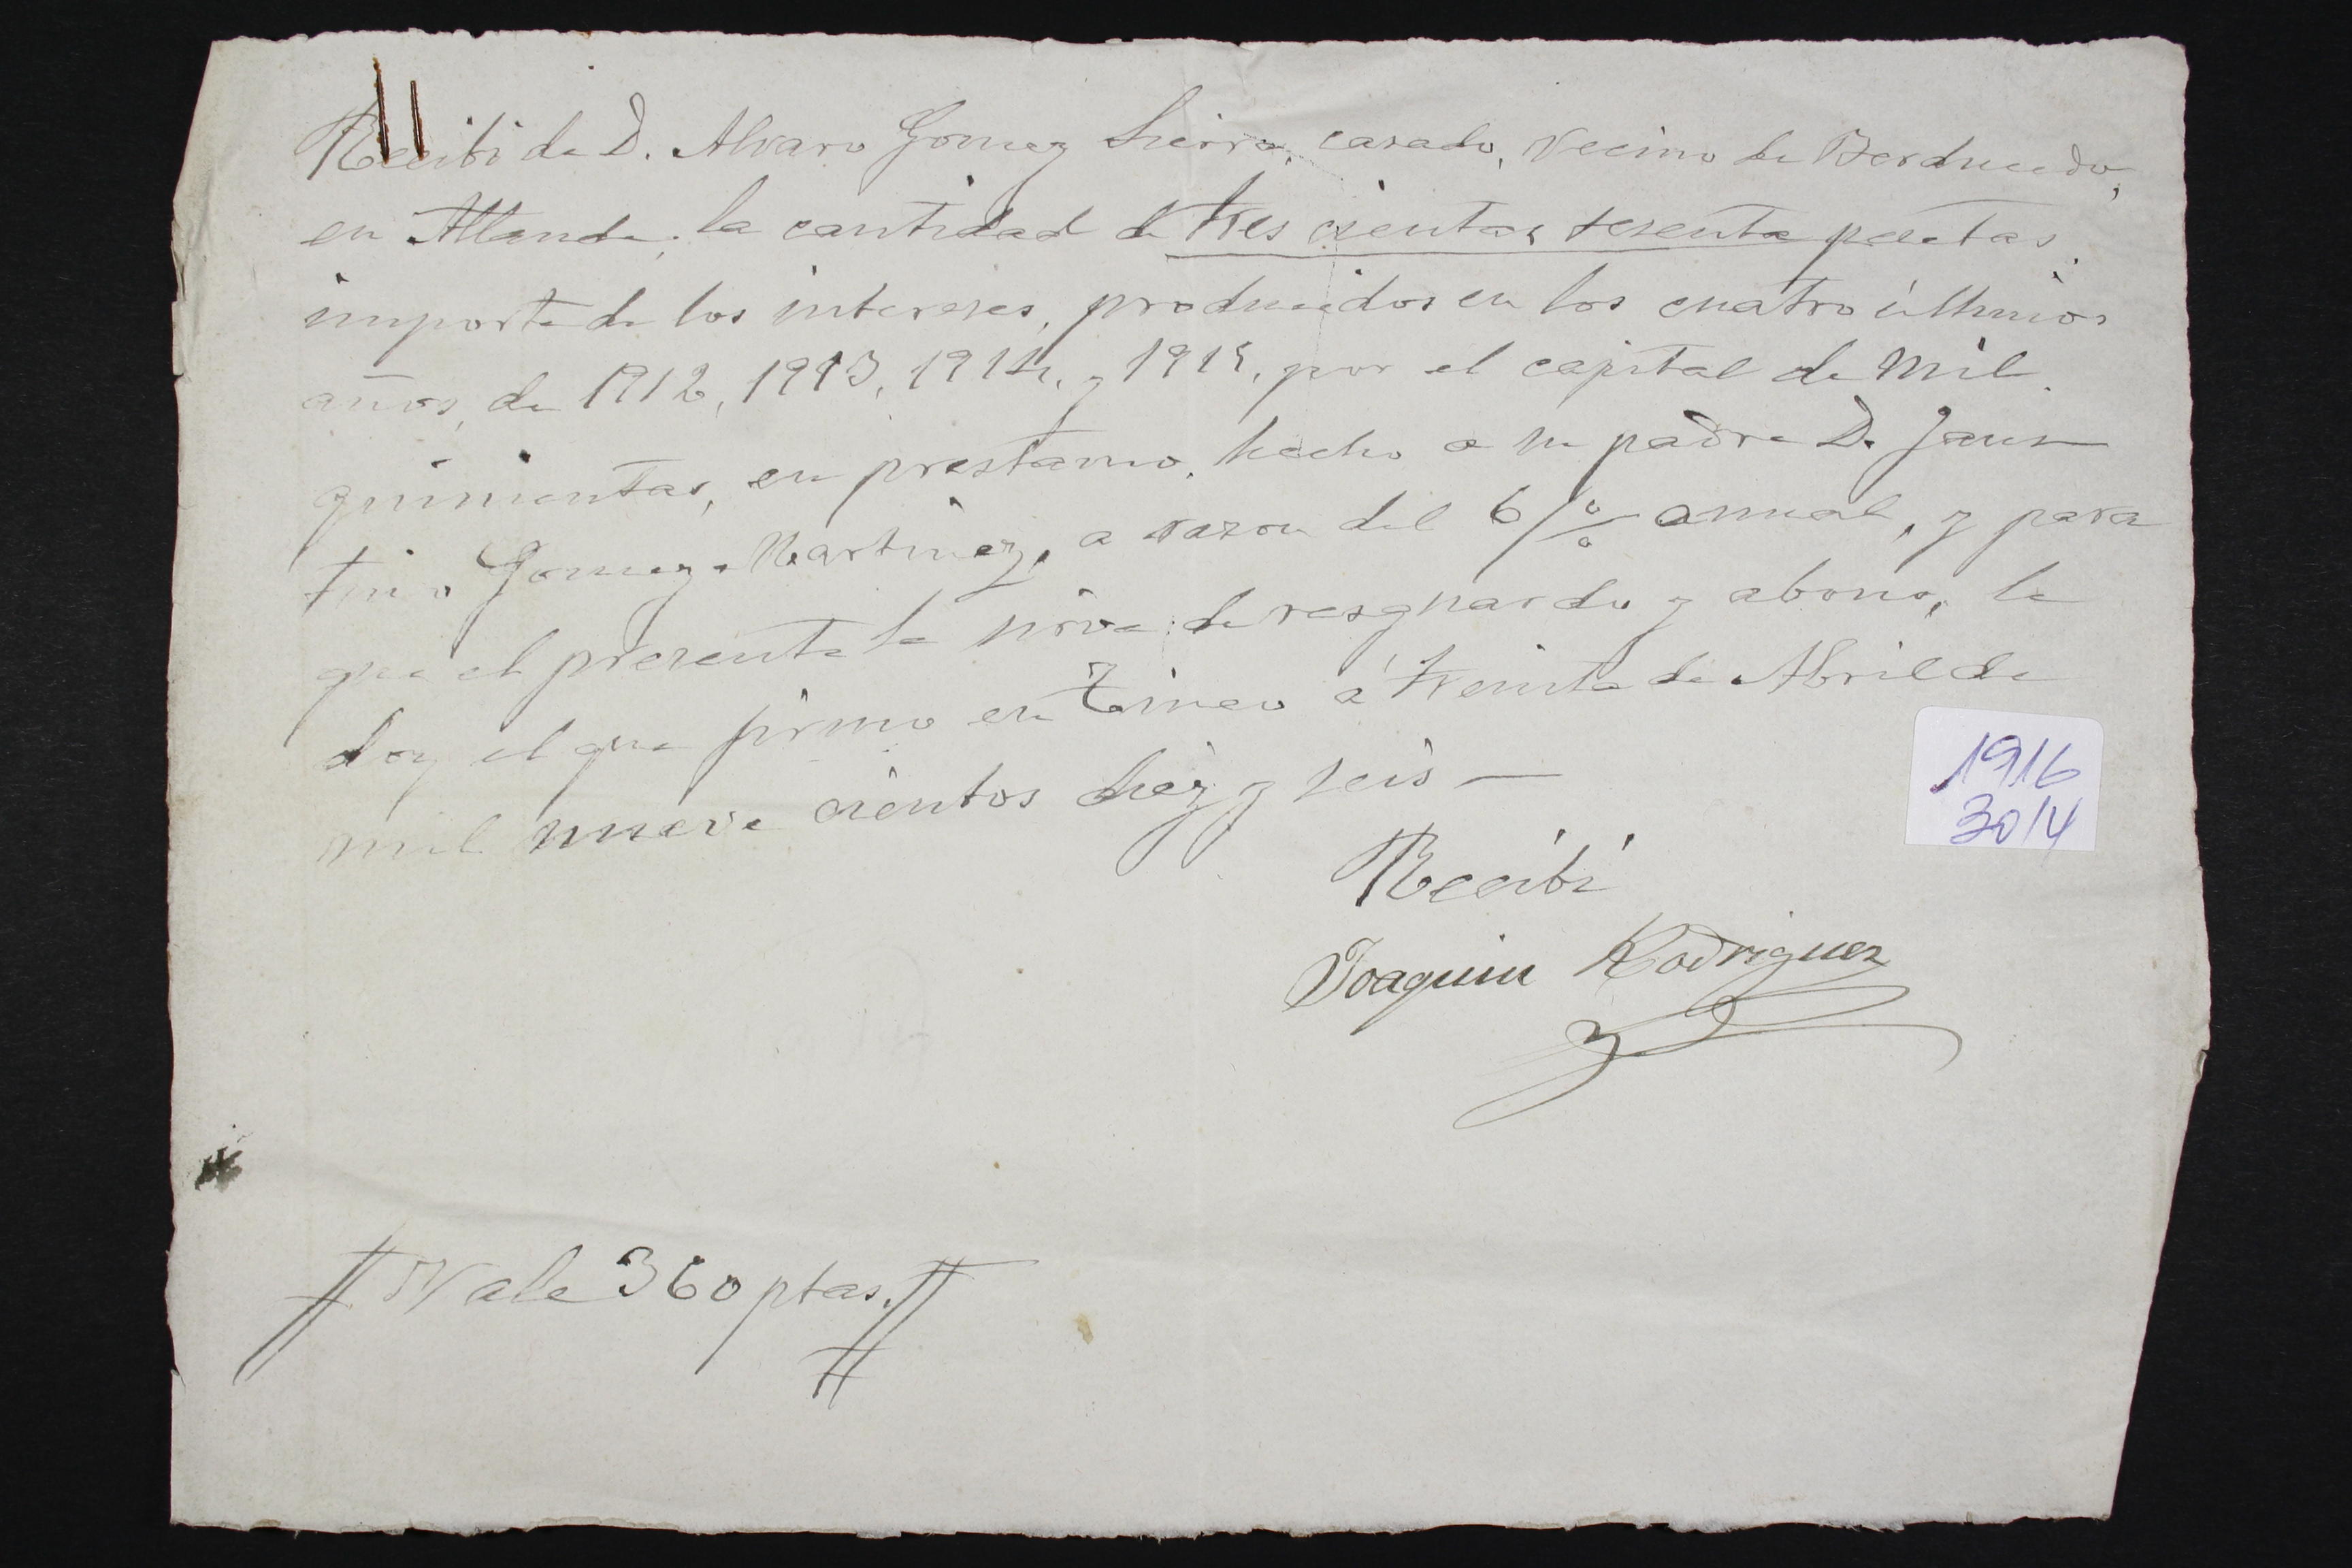 Recibi de D. Alvaro Gomez Sierra, casado, vecino de Berducedo,
en Allande, la cantidad de tres cientas sesenta pesetas,
importe de los intereses, producidos en los cuatro últimos
años, de 1912, 1913, 1914, y 1915, por el capital de mil
quinientas, en prestamo, hecho a su padre D. Faus
tino Gomez Martinez, a razon del 6 % anual, y para
que el presente le sirva de resguardo y abono, le
doy el que firmo en Tineo á treinta de Abril de
mil nueve cientos diez y seis —
Recibí
Joaquin Rodriguez
1916
30/4
# Vale 360 ptas. #